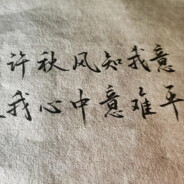 许秋风知我意
我心中意难平